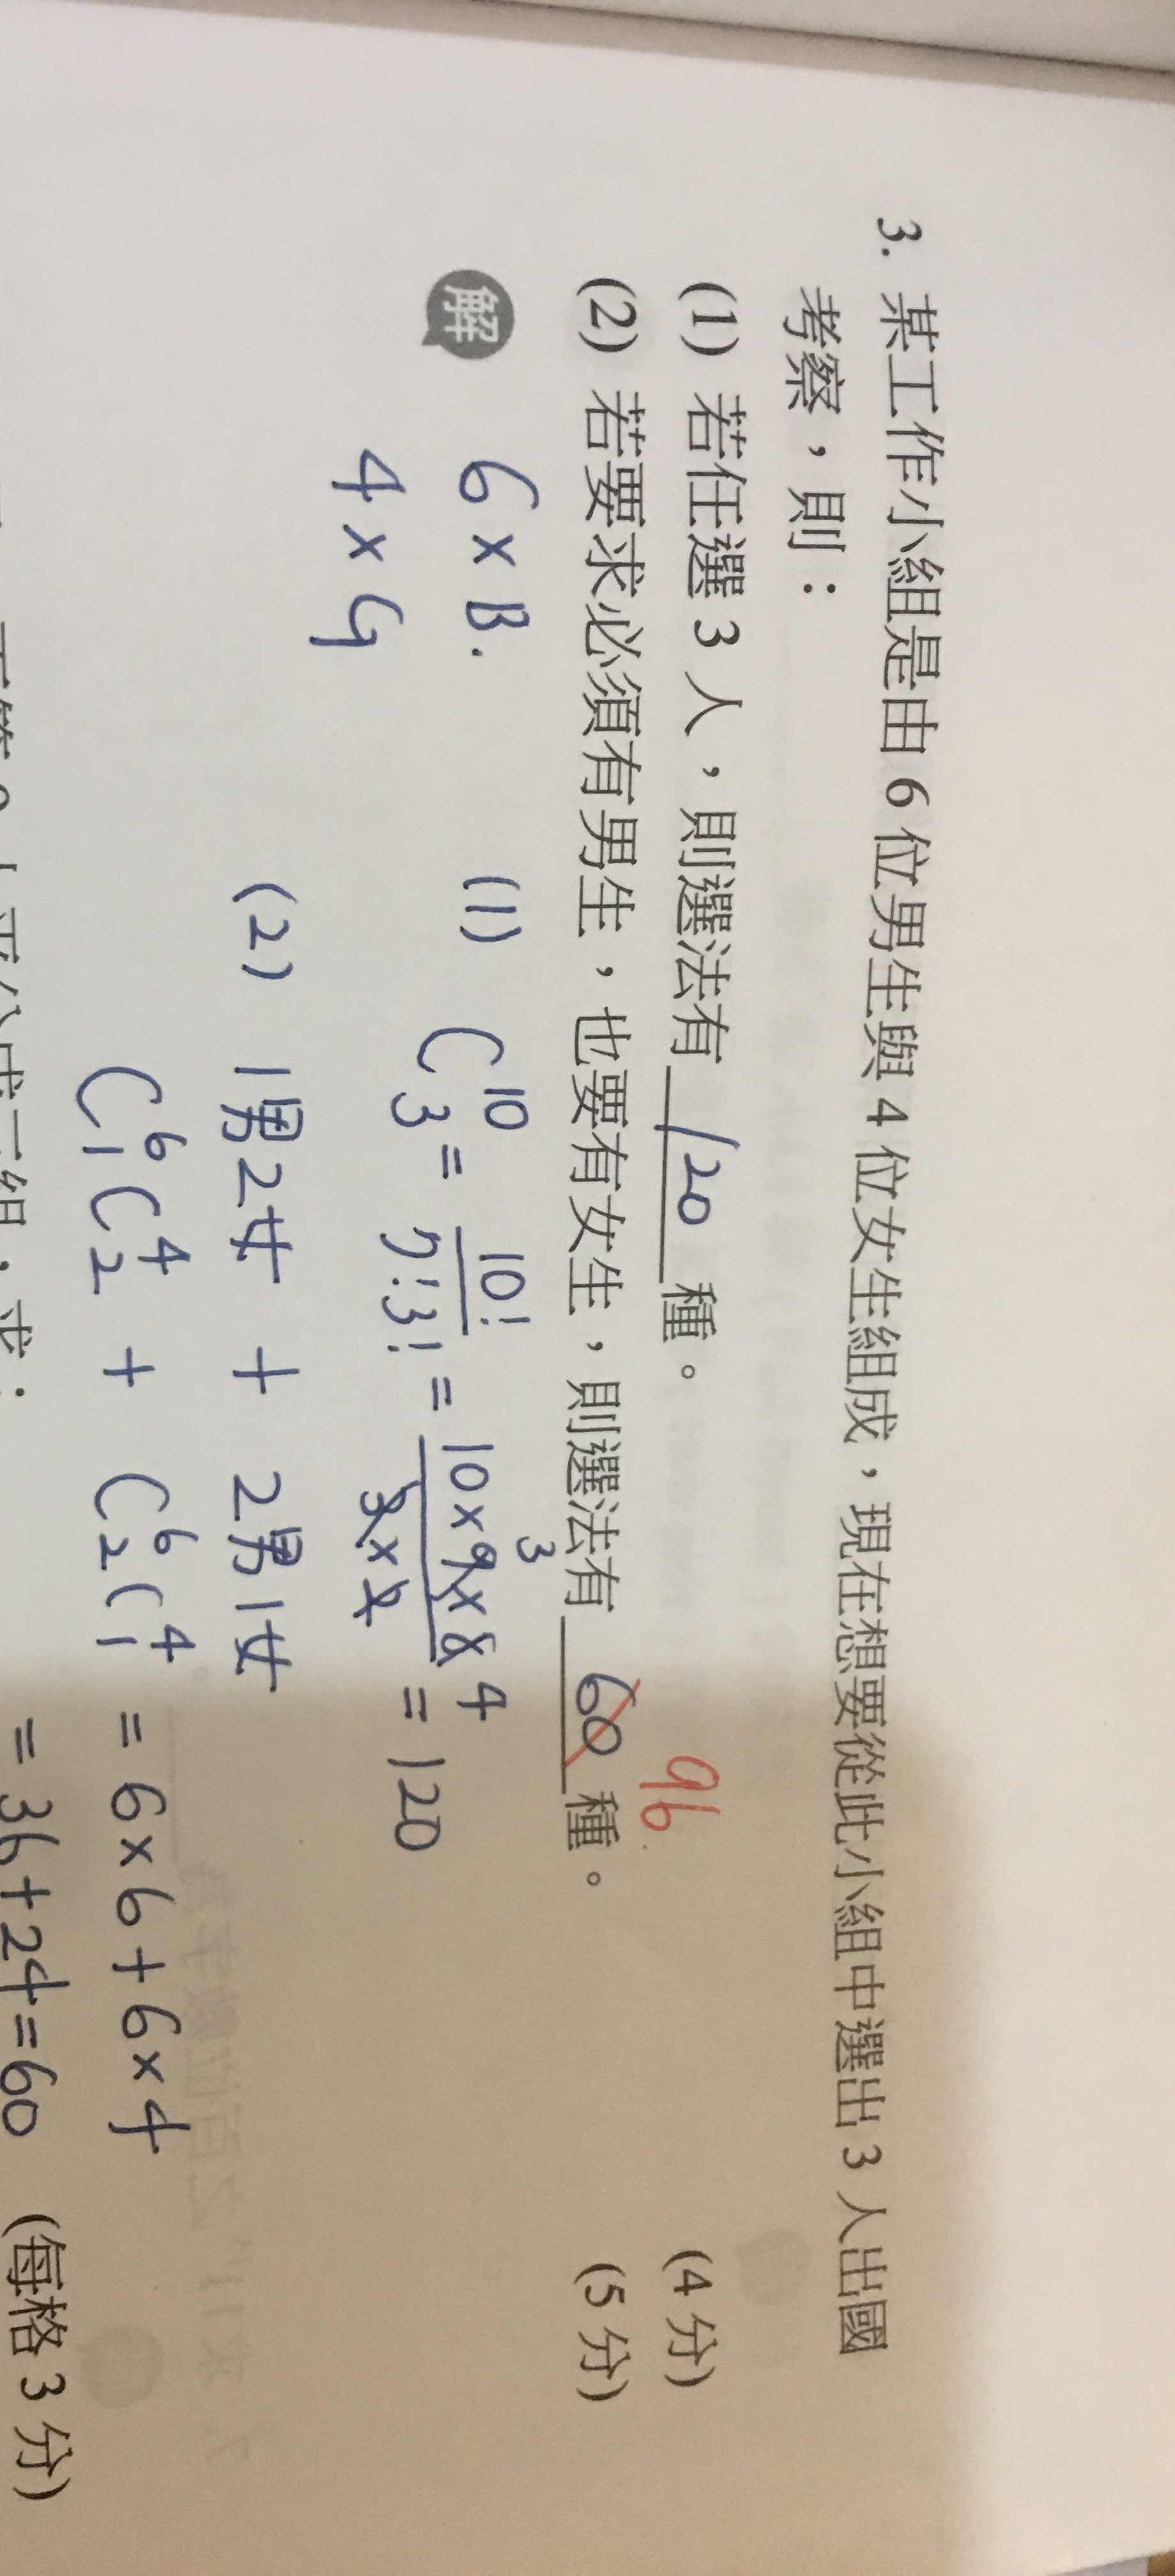 3. 某工作小組是由 6 位男生與 4 位女生組成，現在想要從此小組中選出 3 人出國
考察，則：
(1) 若任選 3 人，則選法有 120 種。 (4 分)
(2) 若要求必須有男生，也要有女生，則選法有 60 種。 (5 分)
96
解
6 × B.
4 × G
(1) C¹⁰₃ = 10!/7!3! = 10×9×8/3×2 = 120
3 4
(2) 1男2女 + 2男1女
C⁶₁C⁴₂ + C⁶₂C⁴₁ = 6×6+6×4
= 36+24=60
(每格 3 分)